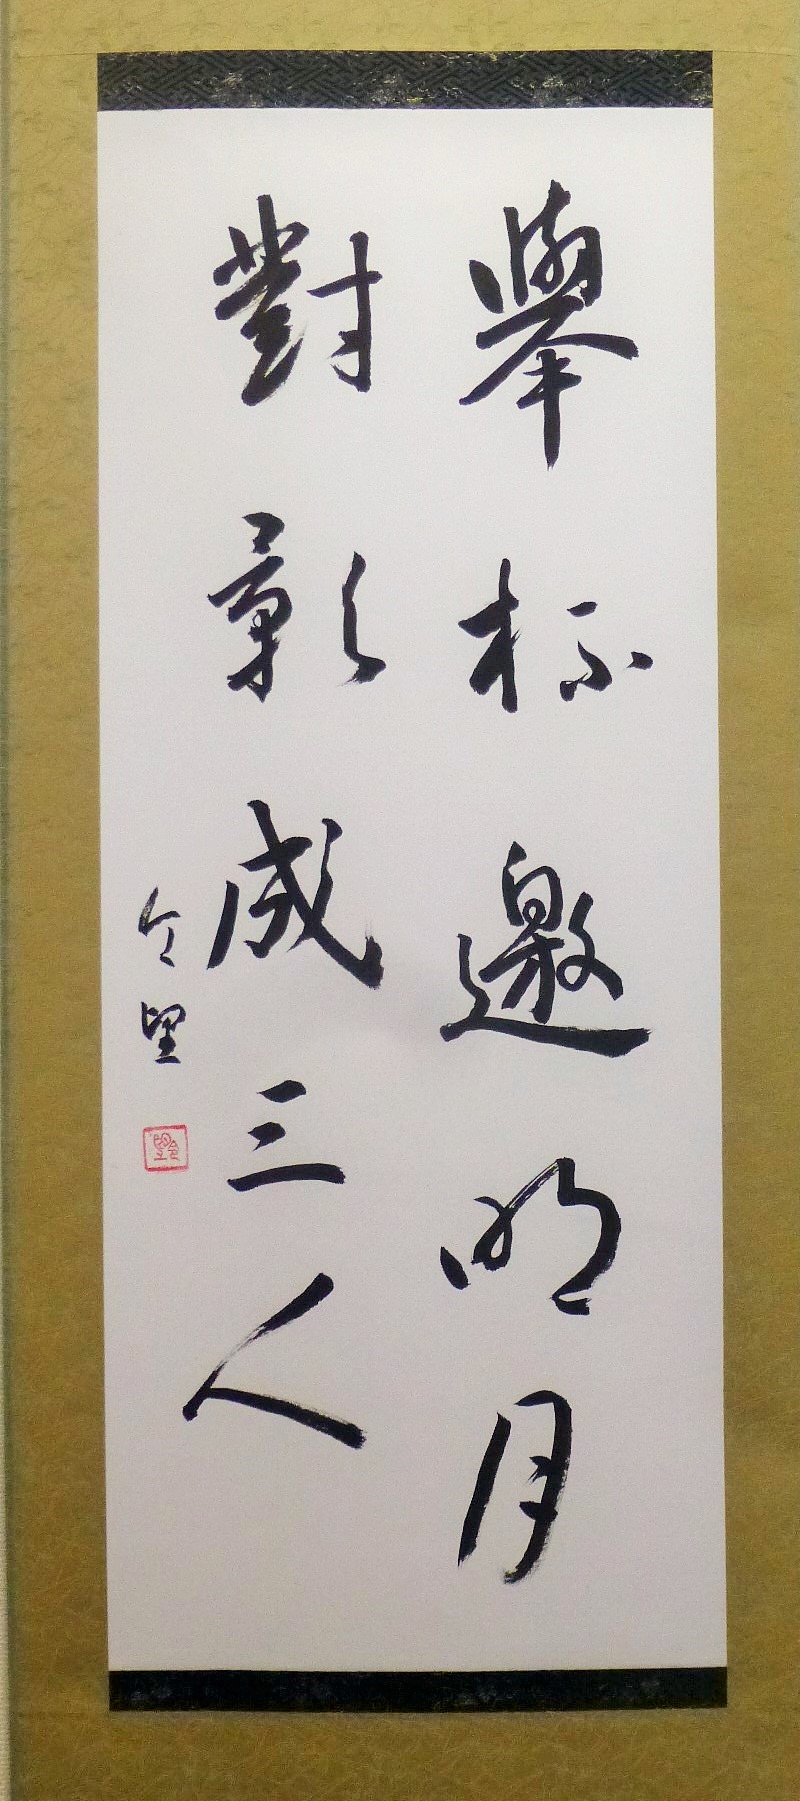 舉杯邀明月
對影成三人
令望